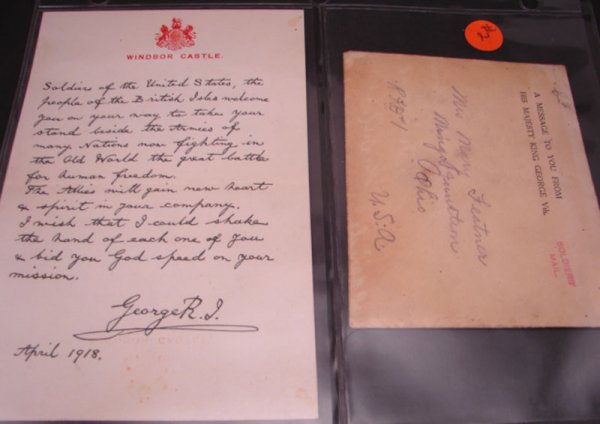 WINDSOR CASTLE.
Soldiers of the United States, the
people of the British Isles welcome
you on your way to take your
stand beside the Armies of
many Nations now fighting in
the Old World the great battle
for human freedom.
The Allies will gain new heart
& spirit in your company.
I wish that I could shake
the hand of each one of you
& bid you God speed on your
mission.
George R.I.
April 1918.
#2
A MESSAGE TO YOU FROM
HIS MAJESTY KING GEORGE Vth.
SOLDIERS'
MAIL.
Miss Mary
Ohio
R F D # 1
U.S.A.